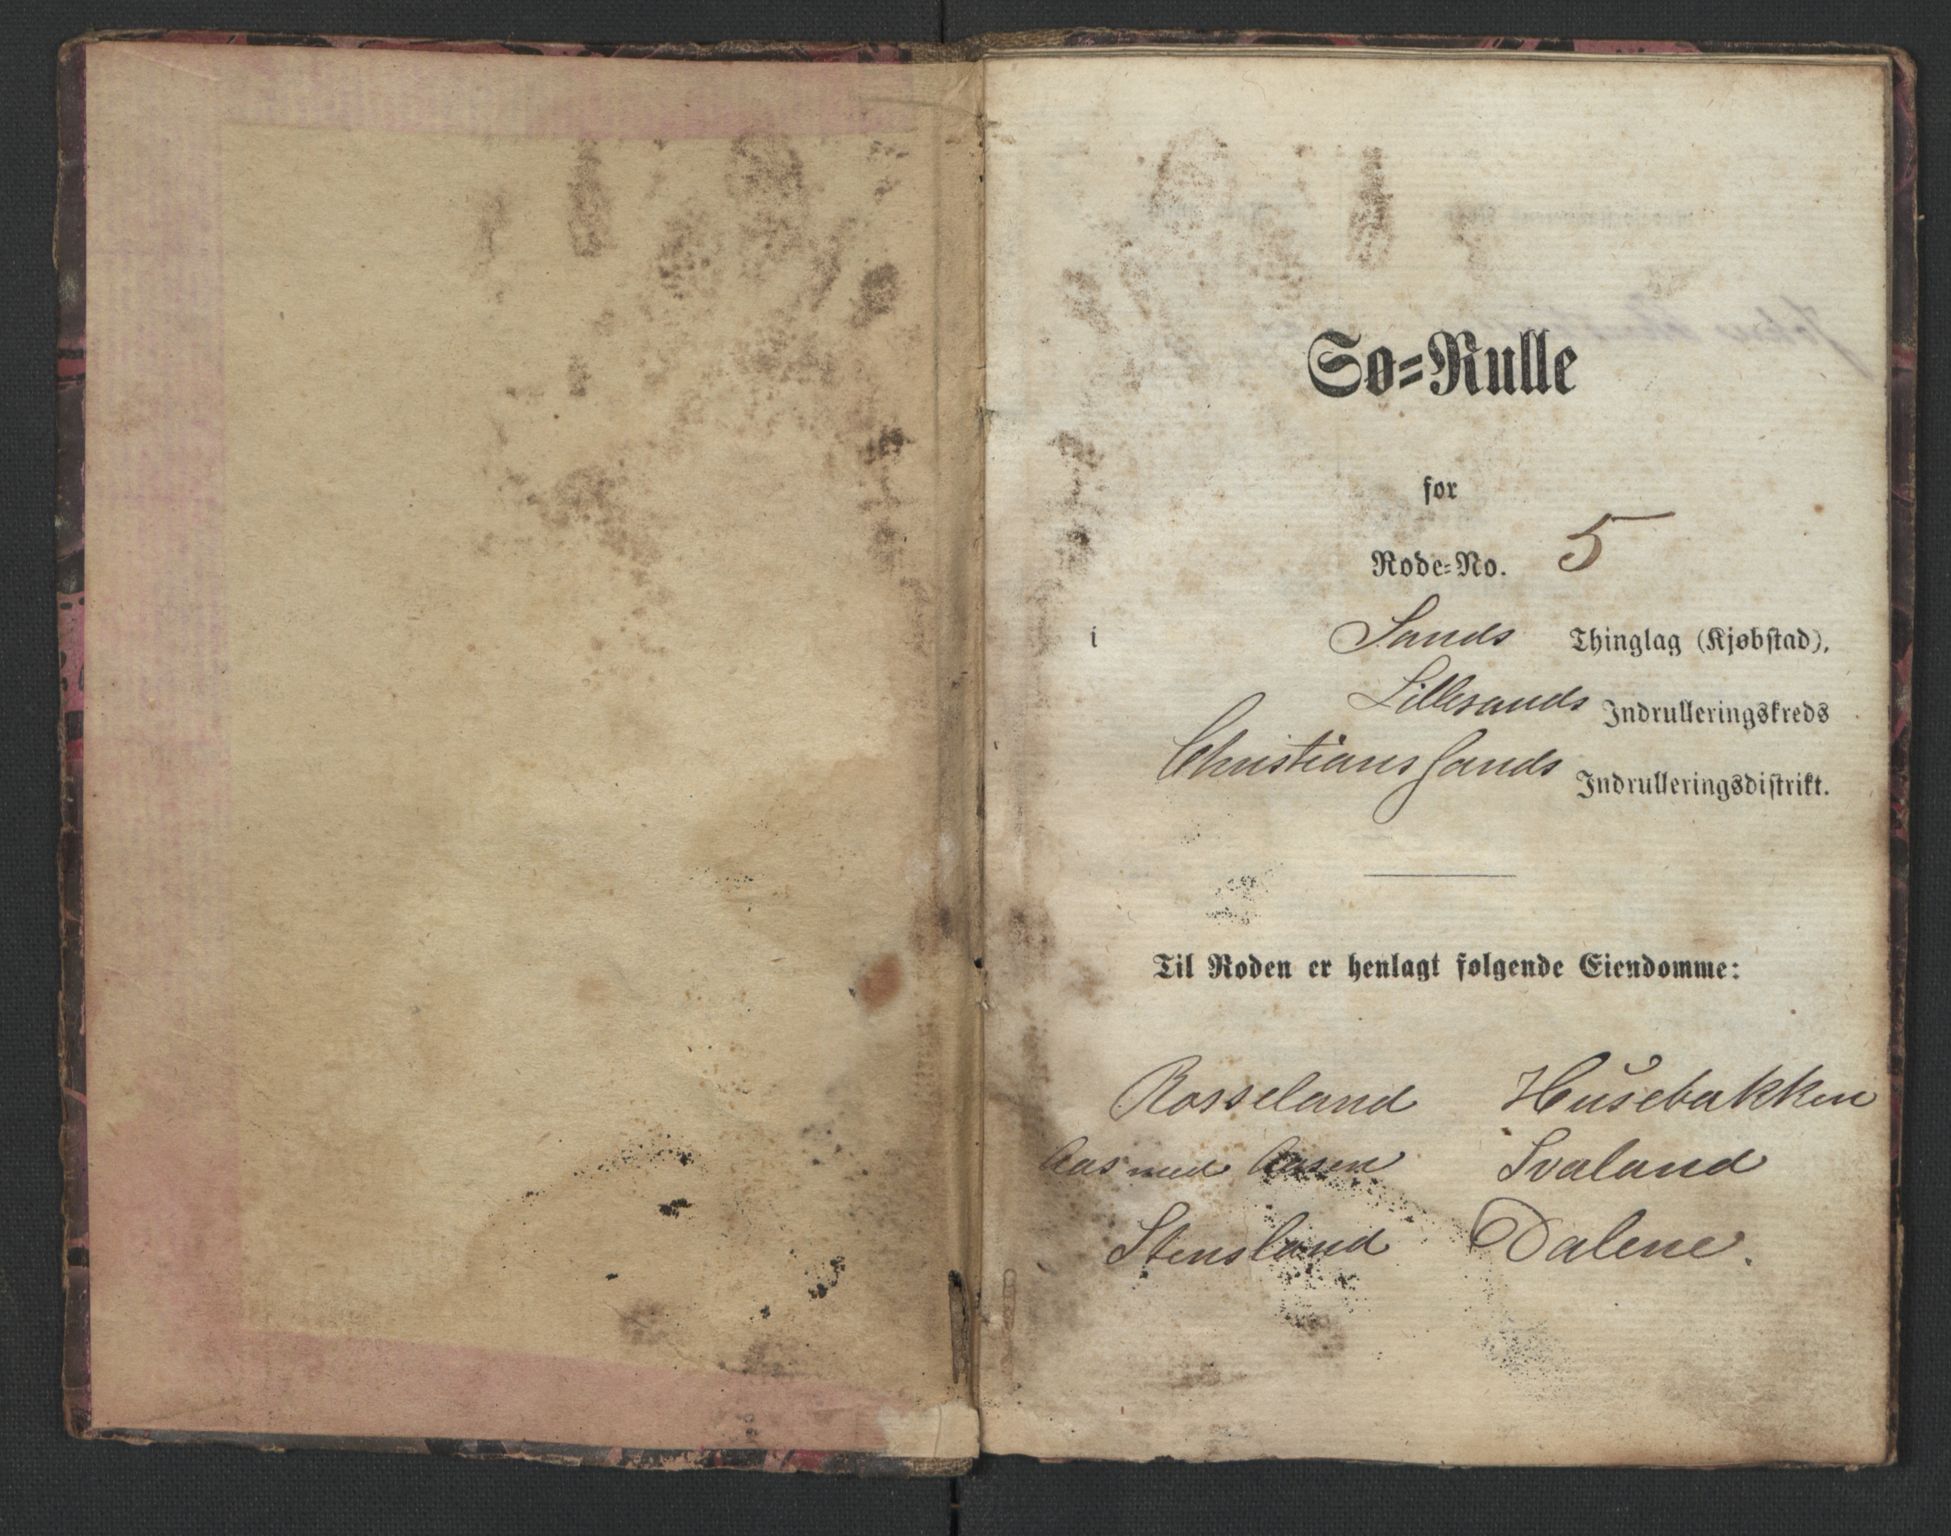 Sø-Rulle
for
Rode-No. 5
i Sands Thinglag (Kjøbstad),
Lillesands Indrulleringskreds
Christianssands Indrulleringsdistrikt.
Til Roden er henlagt følgende Eiendomme:
Rosseland Husebakken
Aas med Aasen Svaland
Stensland Dalene.